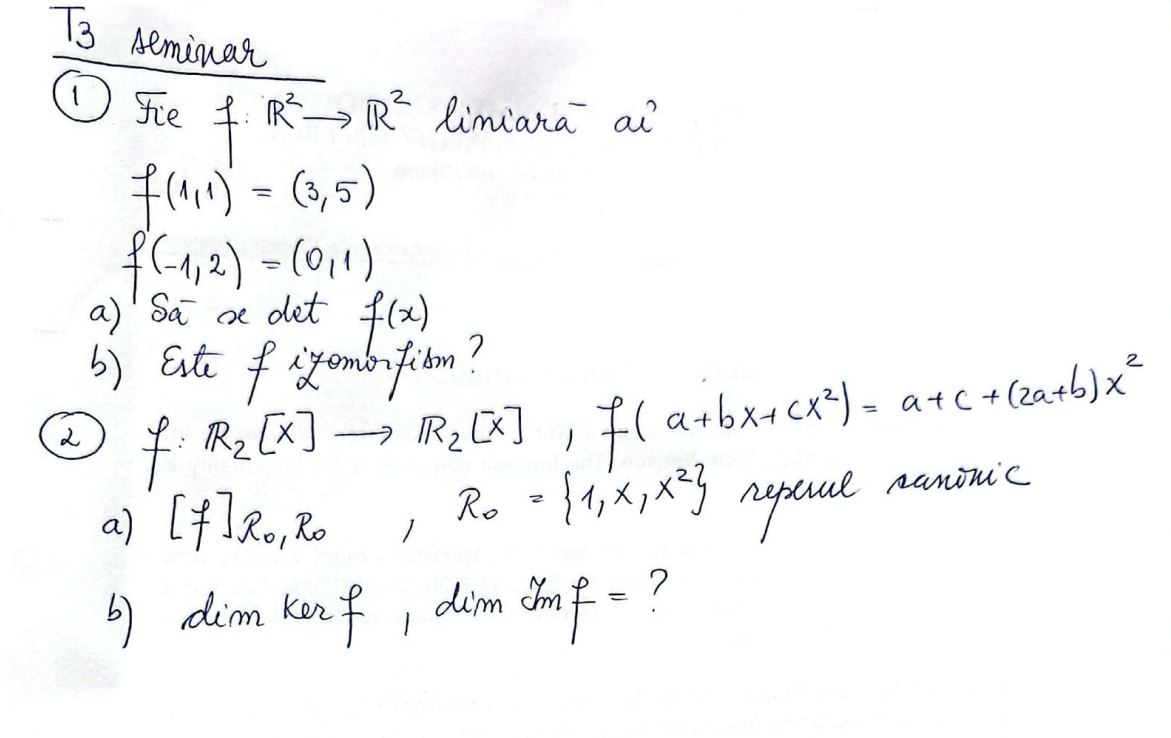 T3 seminar
① Fie f: ℝ² → ℝ² liniară aî
f(1,1) = (3,5)
f(-1,2) = (0,1)
a) Să se det f(x)
b) Este f izomorfism?
② f: ℝ₂[X] → ℝ₂[X] , f(a+bx+cx²) = a+c+(2a+b)x²
a) [f]R₀,R₀ , R₀ = {1,x,x²} reperul canonic
b) dim Ker f , dim Im f = ?